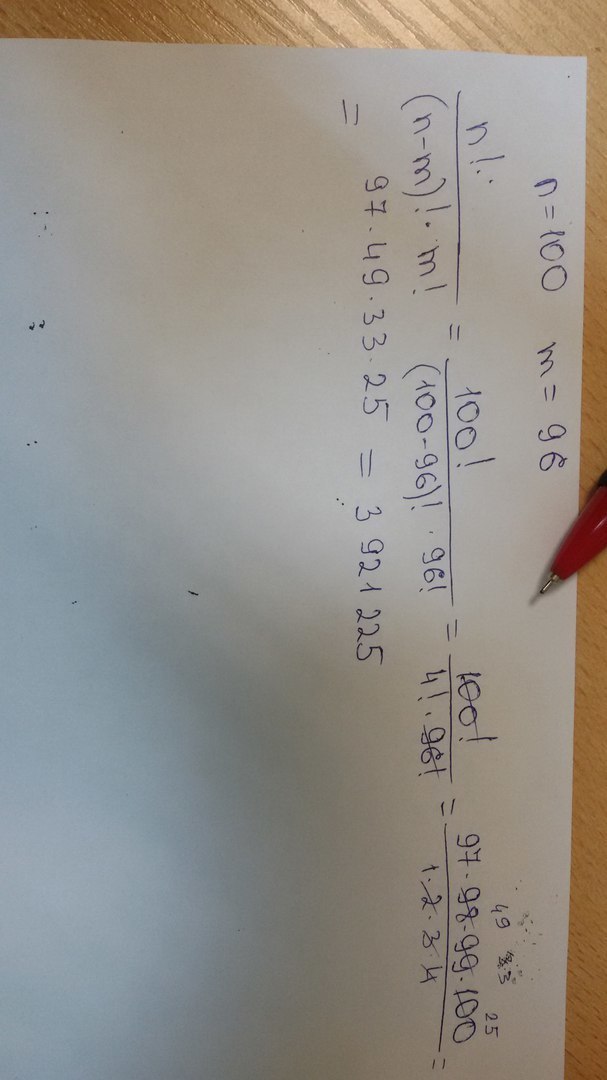 n = 100 m = 96
n! / (n-m)! · m! = 100! / (100-96)! · 96! = 100! / 4! · 96! = 97 · 98 · 99 · 100 / 1 · 2 · 3 · 4 =
49 25
= 97 · 49 · 33 · 25 = 3 921 225